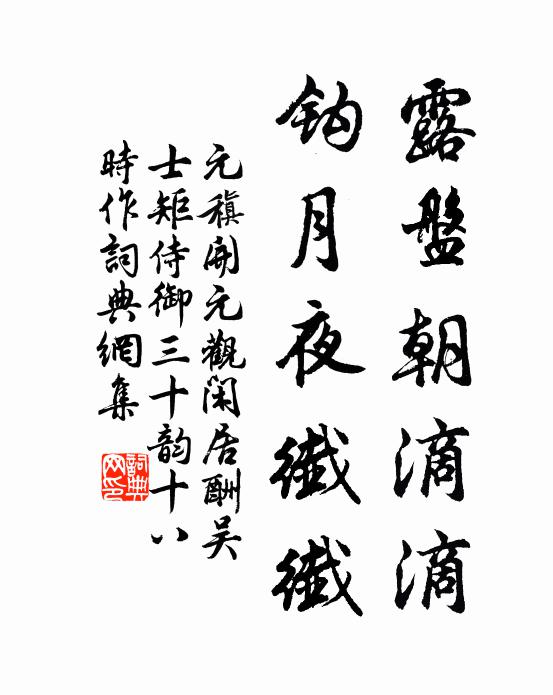 露盤朝滴滴
鈎月夜纖纖
元稹開元觀閑居酬吳
士矩侍御三十韵十八
時作詞典網集
詞典网印